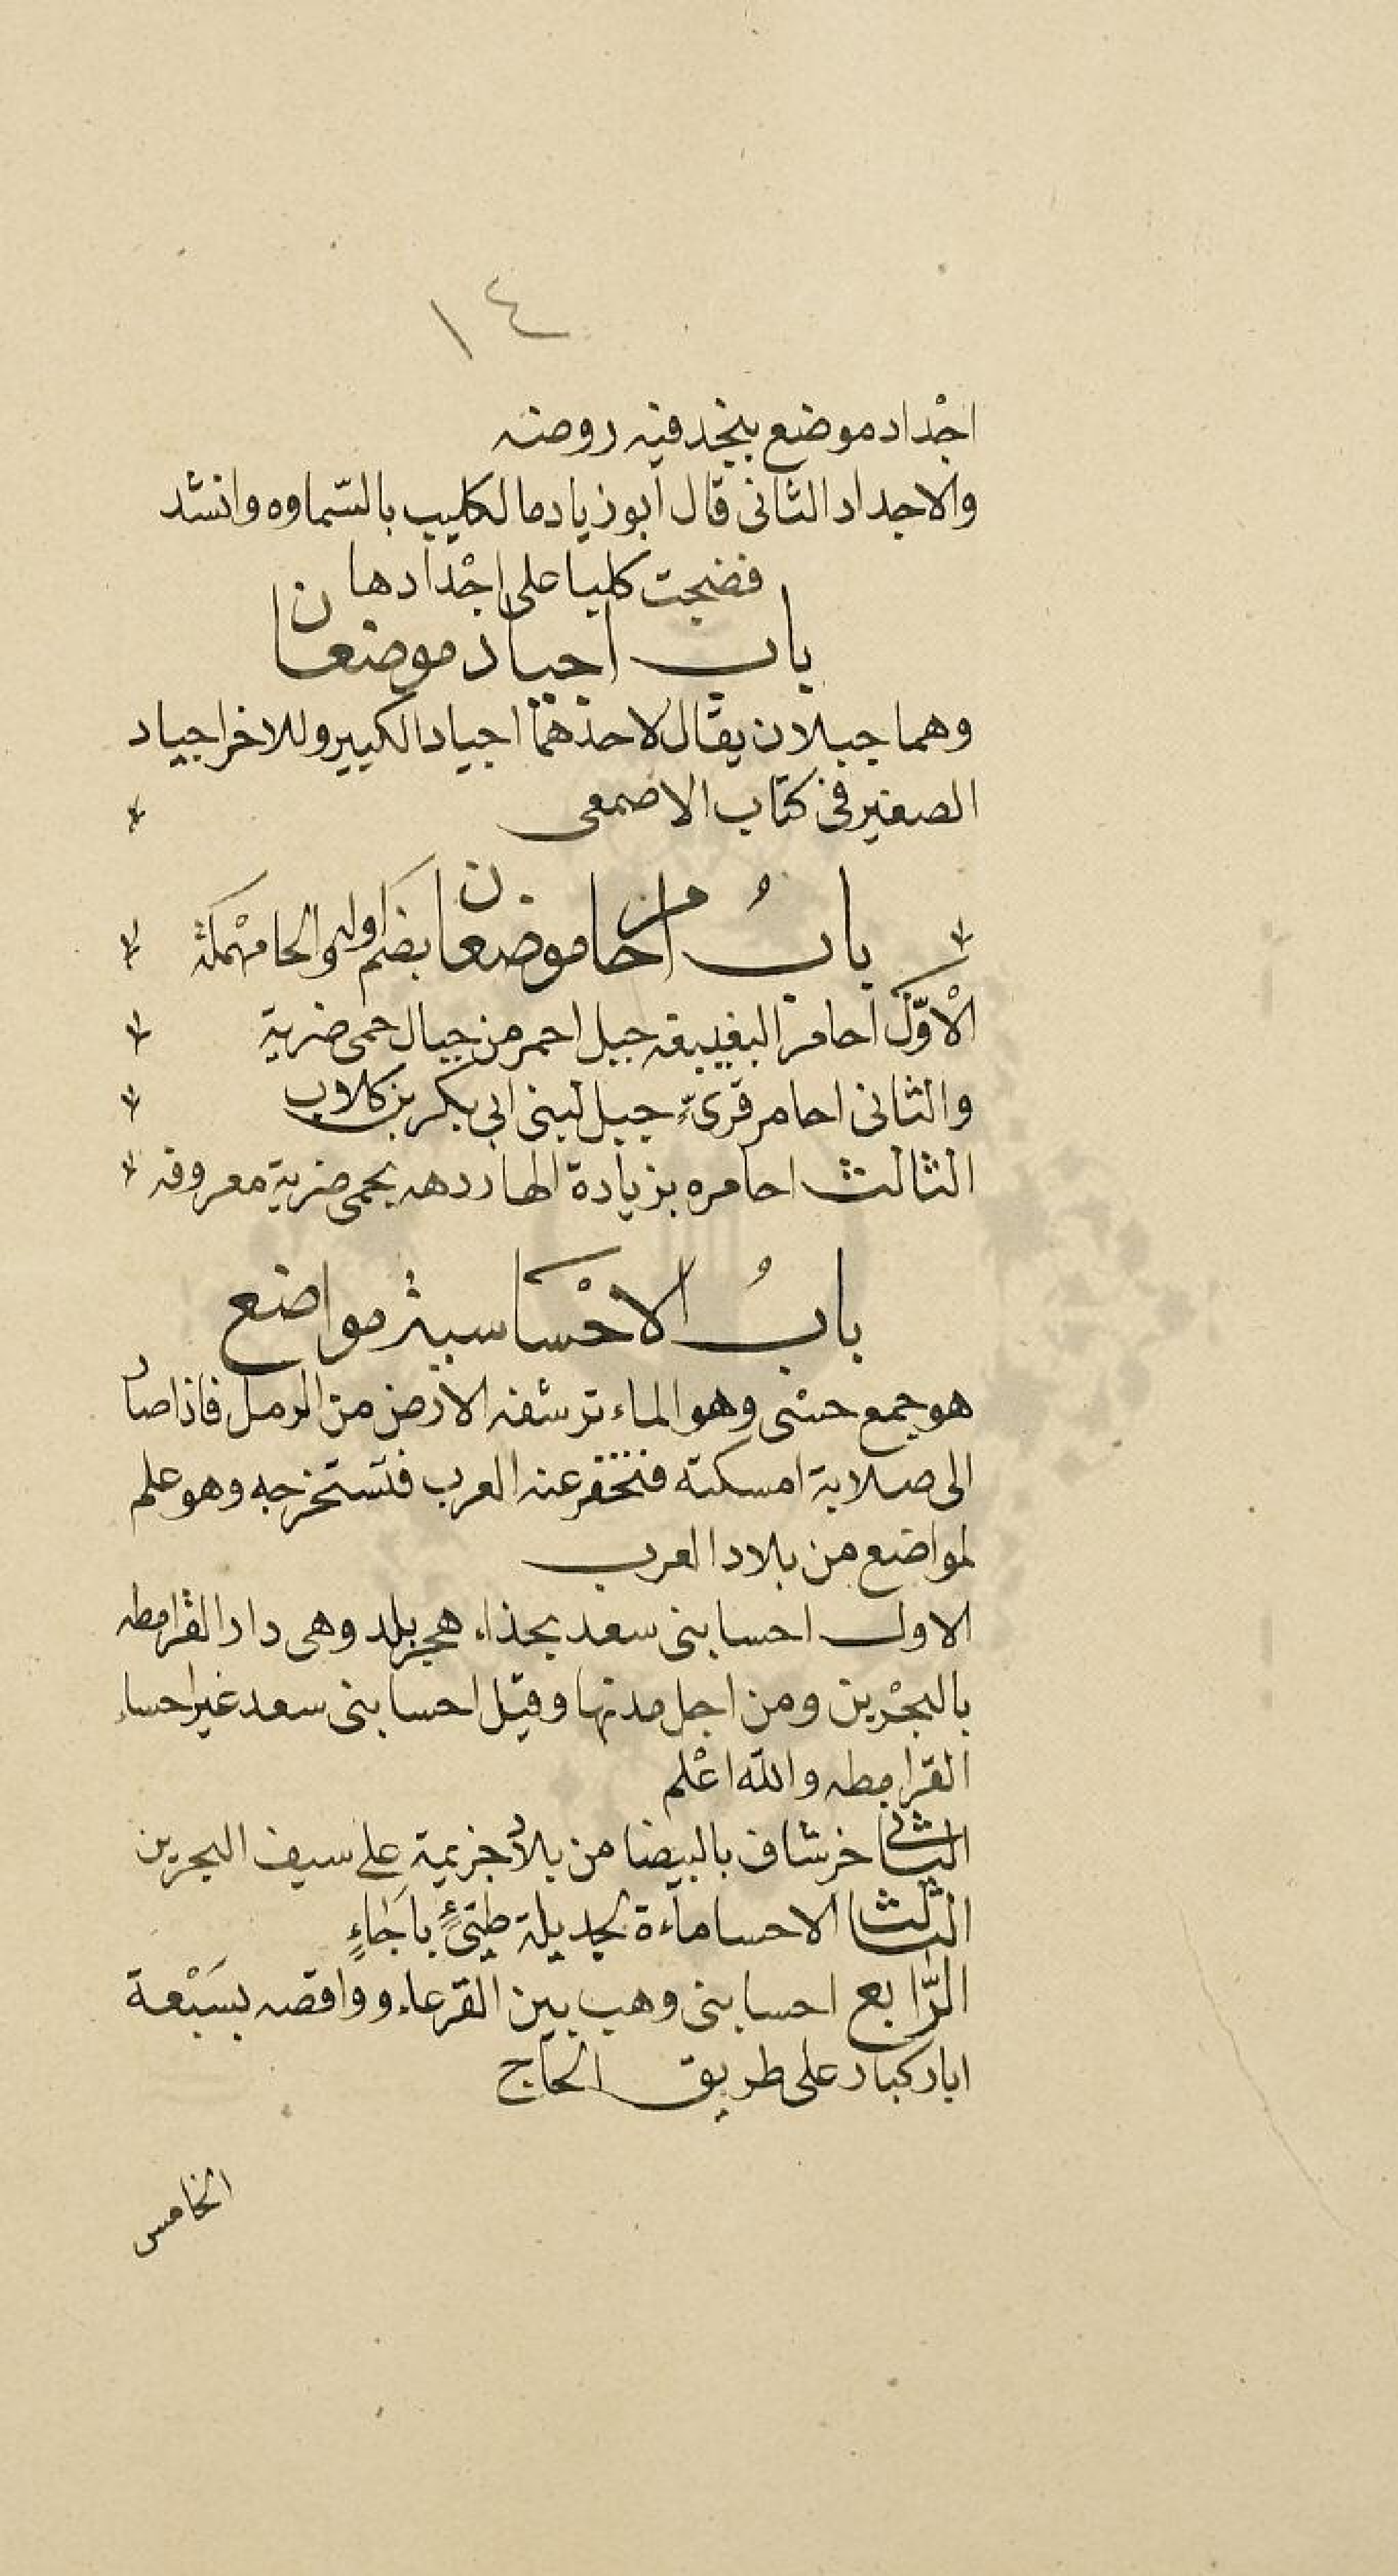 ١٤
اجْداد موضع بنجد فيه روضه
والاجداد الثانى قال ابو زياد ما لكليب بالسّماوه وانشد
فضجت كليبا على اجْدادها
باب اجياد موضعان
وهما جبلان يقال لاحدهما اجياد الكبير وللاخر اجياد
الصغير فى كتاب الاصمعى
بابُ احامر موضعان بضم اوله والحا مهْملة
الْاوّل احامر البغيبغه جبل احمر من جبال حمى ضرية
والثانى احامر قرىء جبل لبنى ابى بكر بن كلاب
الثالث احامره بزيادة الها ردهه بحمى ضرية معروفه
بابُ الاحْسا ستة مواضع
هو جمع حسْى وهو الماء ترشفه الارض من الرمل فاذا صار
الى صلابة امسكته فتحفر عنه العرب فتستخرجه وهو علم
لمواضع من بلاد العرب
الاول احسا بنى سعد بحذاء هجر بلد وهى دار القرامطه
بالبحْرين ومن اجل مدنها وقيل احسا بنى سعد غير احساء
القرامطه والله اعْلم
الثانى خرشاف بالبيضا من بلاد جزيمة على سيف البحرين
الثالث الاحسا ماءة لجديلة طيّئٍ باجاءٍ
الرّابع احسا بنى وهب بين القرعاء وواقصه بسَبْعة
ابار كبار على طريق الحاج
الخامس